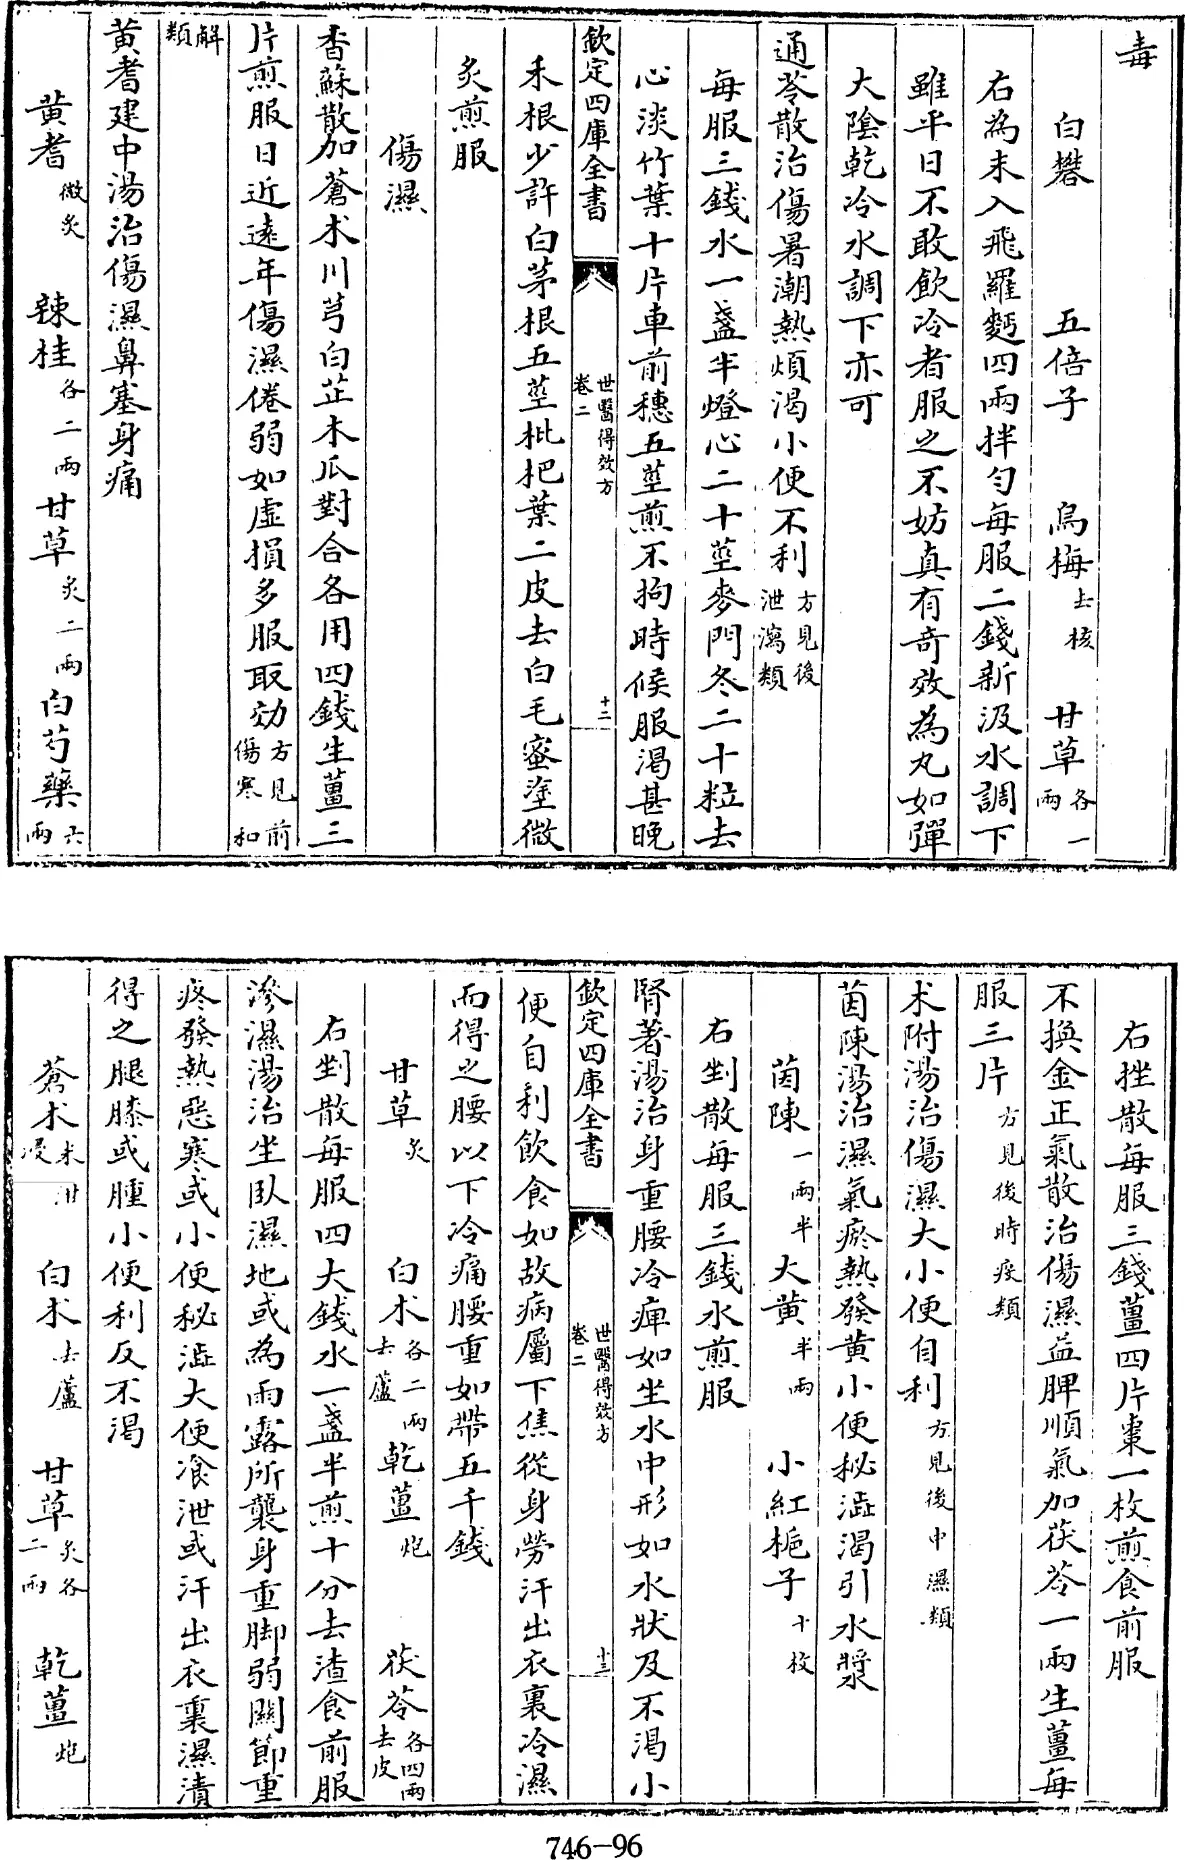 毒
白礬 五倍子 烏梅去核 甘草各一兩
右為末入飛羅麪四兩拌勻每服二錢新汲水調下
雖平日不敢飲冷者服之不妨真有奇效為丸如彈
大陰乾冷水調下亦可
通苓散治傷暑潮熱煩渴小便不利方見後泄瀉類
每服三錢水一盞半燈心二十莖麥門冬二十粒去
心淡竹葉十片車前穗五莖煎不拘時候服渴甚晚
欽定四庫全書 世醫得效方卷二 十二
禾根少許白茅根五莖枇杷葉二皮去白毛蜜塗微
炙煎服
傷濕
香蘇散加蒼朮川芎白芷木瓜對合各用四錢生薑三
片煎服日近遠年傷濕倦弱如虛損多服取効方見前傷寒和
解類
黃耆建中湯治傷濕鼻塞身痛
黃耆微炙 辣桂各二兩 甘草炙二兩 白芍藥六兩
右挫散每服三錢薑四片棗一枚煎食前服
不換金正氣散治傷濕益脾順氣加茯苓一兩生薑每
服三片方見後時疫類
朮附湯治傷濕大小便自利方見後中濕類
茵陳湯治濕氣瘀熱發黃小便秘澁渴引水漿
茵陳一兩半 大黃半兩 小紅梔子十枚
右剉散每服三錢水煎服
腎著湯治身重腰冷痺如坐水中形如水狀及不渴小
欽定四庫全書 世醫得效方卷二 十三
便自利飲食如故病屬下焦從身勞汗出衣裏冷濕
而得之腰以下冷痛腰重如帶五千錢
甘草炙 白朮各二兩去蘆 乾薑炮 茯苓各四兩去皮
右剉散每服四大錢水一盞半煎十分去渣食前服
滲濕湯治坐臥濕地或為雨露所襲身重脚弱關節重
疼發熱惡寒或小便秘澁大便飡泄或汗出衣裏濕漬
得之腿膝或腫小便利反不渴
蒼朮米泔浸 白朮去蘆 甘草炙各二兩 乾薑炮
746-96